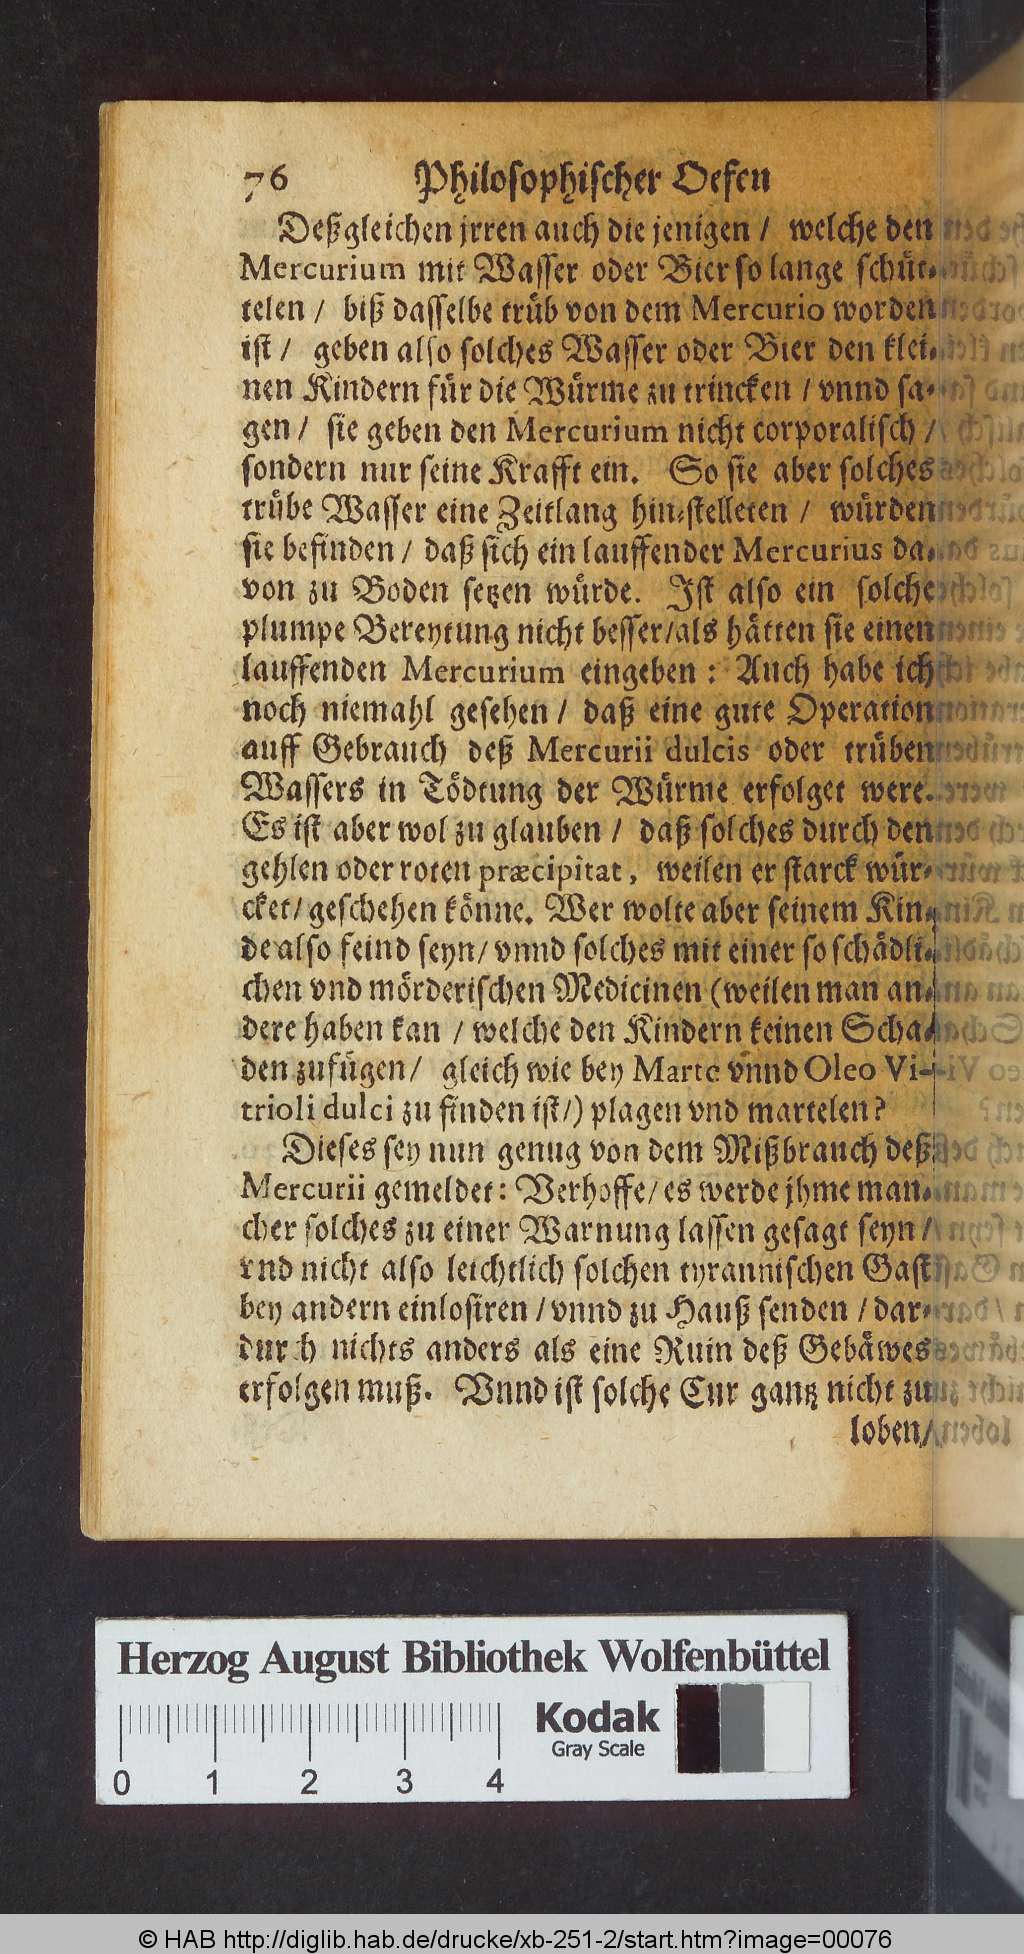 76 Philosophischer Oefen
Deßgleichen jrren auch die jenigen / welche den
Mercurium mit Wasser oder Bier so lange schüt-
telen / biß dasselbe trüb von dem Mercurio worden
ist / geben also solches Wasser oder Bier den klei-
nen Kindern für die Würme zu trincken / vnnd sa-
gen / sie geben den Mercurium nicht corporalisch /
sondern nur seine Krafft ein. So sie aber solches
trübe Wasser eine Zeitlang hin-stelleten / würden
sie befinden / daß sich ein lauffender Mercurius da-
von zu Boden setzen würde. Ist also ein solche
plumpe Bereytung nicht besser/als hätten sie einen
lauffenden Mercurium eingeben : Auch habe ich
noch niemahl gesehen / daß eine gute Operation
auff Gebrauch deß Mercurii dulcis oder trüben
Wassers in Tödtung der Würme erfolget were.
Es ist aber wol zu glauben / daß solches durch den
gehlen oder roten præcipitat, weilen er starck wür-
cket/ geschehen könne. Wer wolte aber seinem Kin-
de also feind seyn/ vnnd solches mit einer so schädli-
chen vnd mörderischen Medicinen (weilen man an-
dere haben kan / welche den Kindern keinen Scha-
den zufügen/ gleich wie bey Marte vnnd Oleo Vi-
trioli dulci zu finden ist/) plagen vnd martelen?
Dieses sey nun genug von dem Mißbrauch deß
Mercurii gemeldet: Verhoffe/ es werde jhme man-
cher solches zu einer Warnung lassen gesagt seyn /
vnd nicht also leichtlich solchen tyrannischen Gast
bey andern einlosiren / vnnd zu Hauß senden / dar-
durch nichts anders als eine Ruin deß Gebäwes
erfolgen muß. Vnnd ist solche Cur gantz nicht zu
loben/
Herzog August Bibliothek Wolfenbüttel
Kodak
Gray Scale
0 1 2 3 4
© HAB http://diglib.hab.de/drucke/xb-251-2/start.htm?image=00076